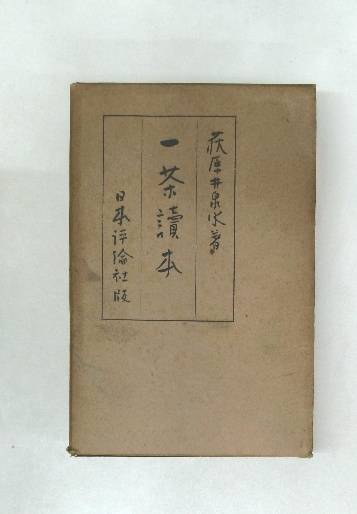 荻原井泉水著
一茶讀本
日本評論社版